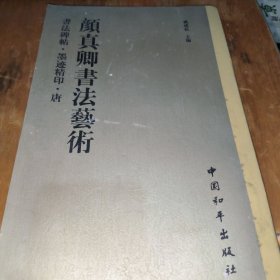 顔真卿書法藝術
書法碑帖·墨迹精印·唐
主編
中国和平出版社